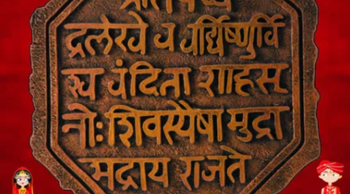 द्रलेखेव वर्धिष्णुर्वि
श्व वंदिता शाहसू
नोः शिवस्यैषा मुद्रा
भद्राय राजते